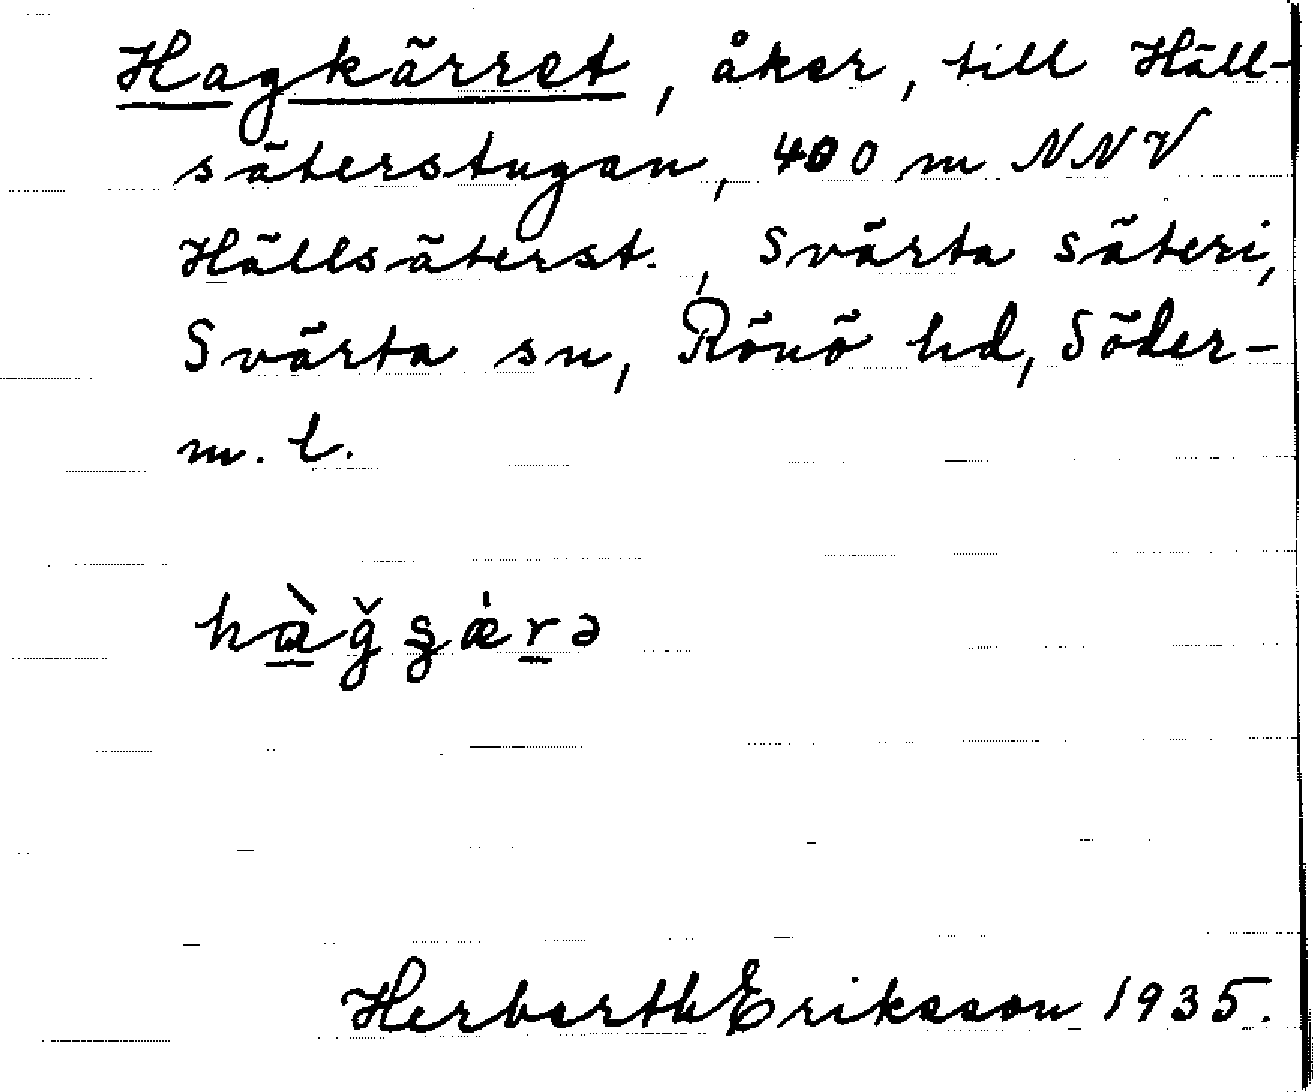 Hagkärret, åker, till Häll-
säterstugan, 400 m NNV
Hällsäterst., Svärta säteri,
Svärta sn, Rönö hd, Söder-
m. l.
hàǧgǽrə
Herberth Eriksson 1935.